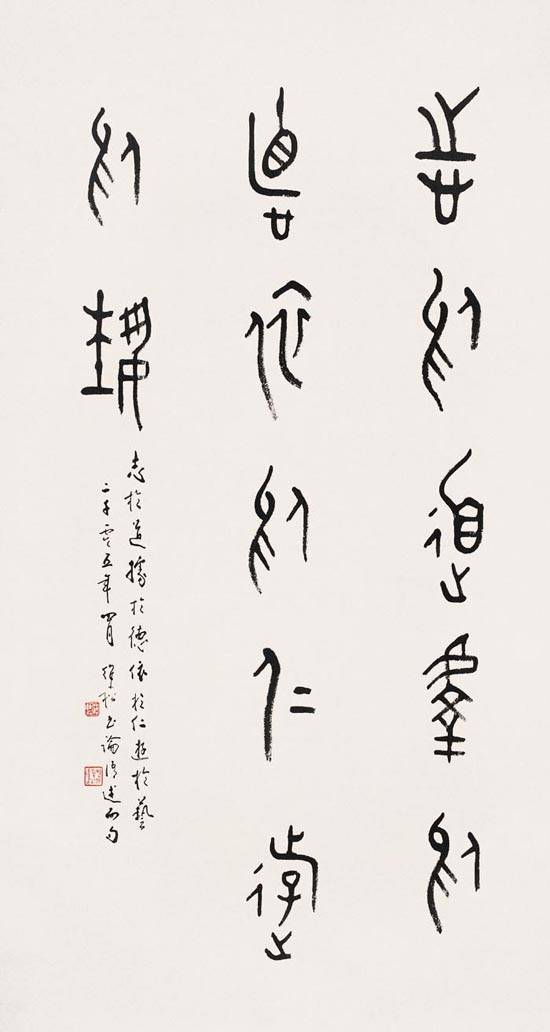 志於道據於
德依於仁遊
於藝
志於道據於德依於仁遊於藝
二千零五年四月 書論語述而句